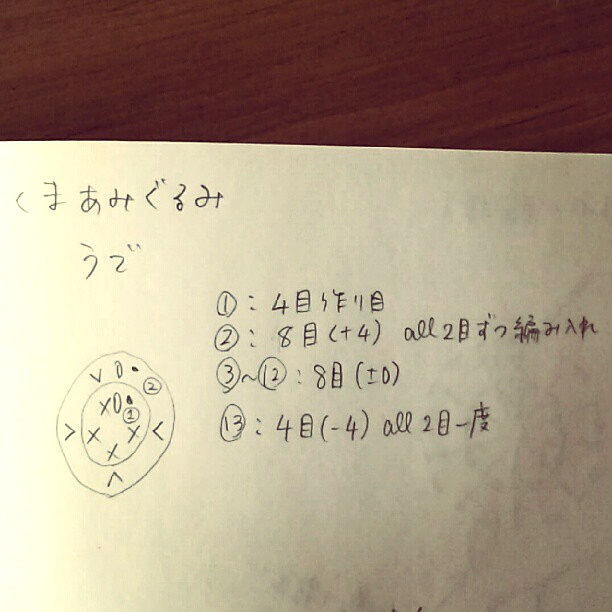 くまあみぐるみ
うで
①：4目作り目
②：8目(+4) all 2目ずつ編み入れ
③～⑫：8目(±0)
⑬：4目(-4) all 2目一度
V 0 •
②
X 0 •
①
> X X <
X
^